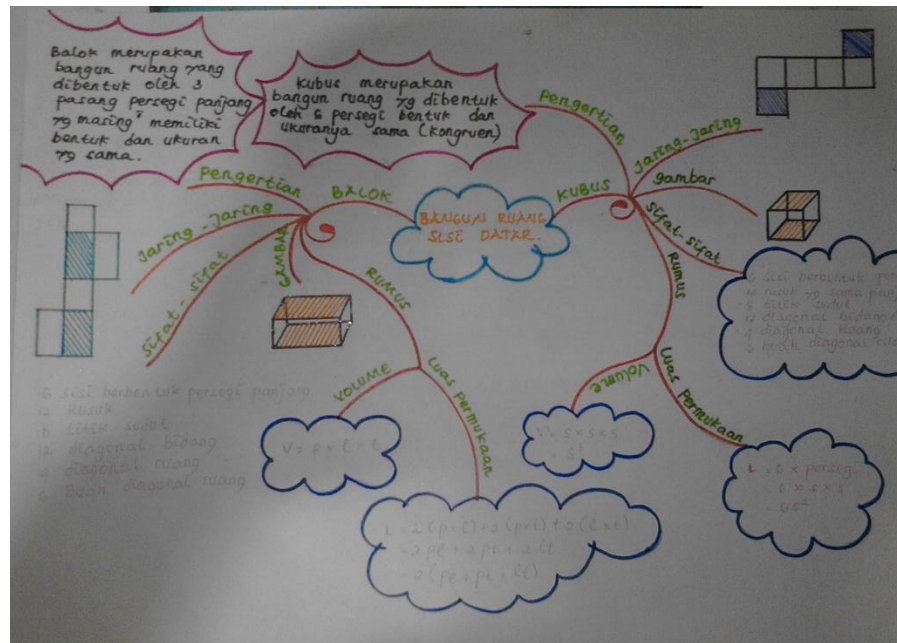 Balok merupakan
bangun ruang yang
dibentuk oleh 3
pasang persegi panjang
yg masing² memiliki
bentuk dan ukuran
yg sama.
Kubus merupakan
bangun ruang yg dibentuk
oleh 6 persegi bentuk dan
ukuranya sama (kongruen)
BANGUN RUANG
SISI DATAR.
BALOK
Pengertian
Jaring-Jaring
Sifat-sifat
GAMBAR
RUMUS
VOLUME
Luas permukaan
6 sisi berbentuk persegi panjang
12 Rusuk
titik sudut
12 diagonal bidang
4 diagonal ruang
6 diagonal ruang
V = p × l × t
L = 2(p×l)+2(p×t)+2(l×t)
= 2pl + 2pt + 2lt
= 2(pl + pt + lt)
KUBUS
Pengertian
Jaring-Jaring
gambar
Sifat-sifat
RUMUS
Volume
Luas permukaan
6 sisi berbentuk
12 rusuk yg sama
8 titik sudut
12 diagonal bidang
4 diagonal Ruang
6 diagonal
V = s × s × s
= s³
L = 6 × persegi
= 6 × s × s
= 6s²